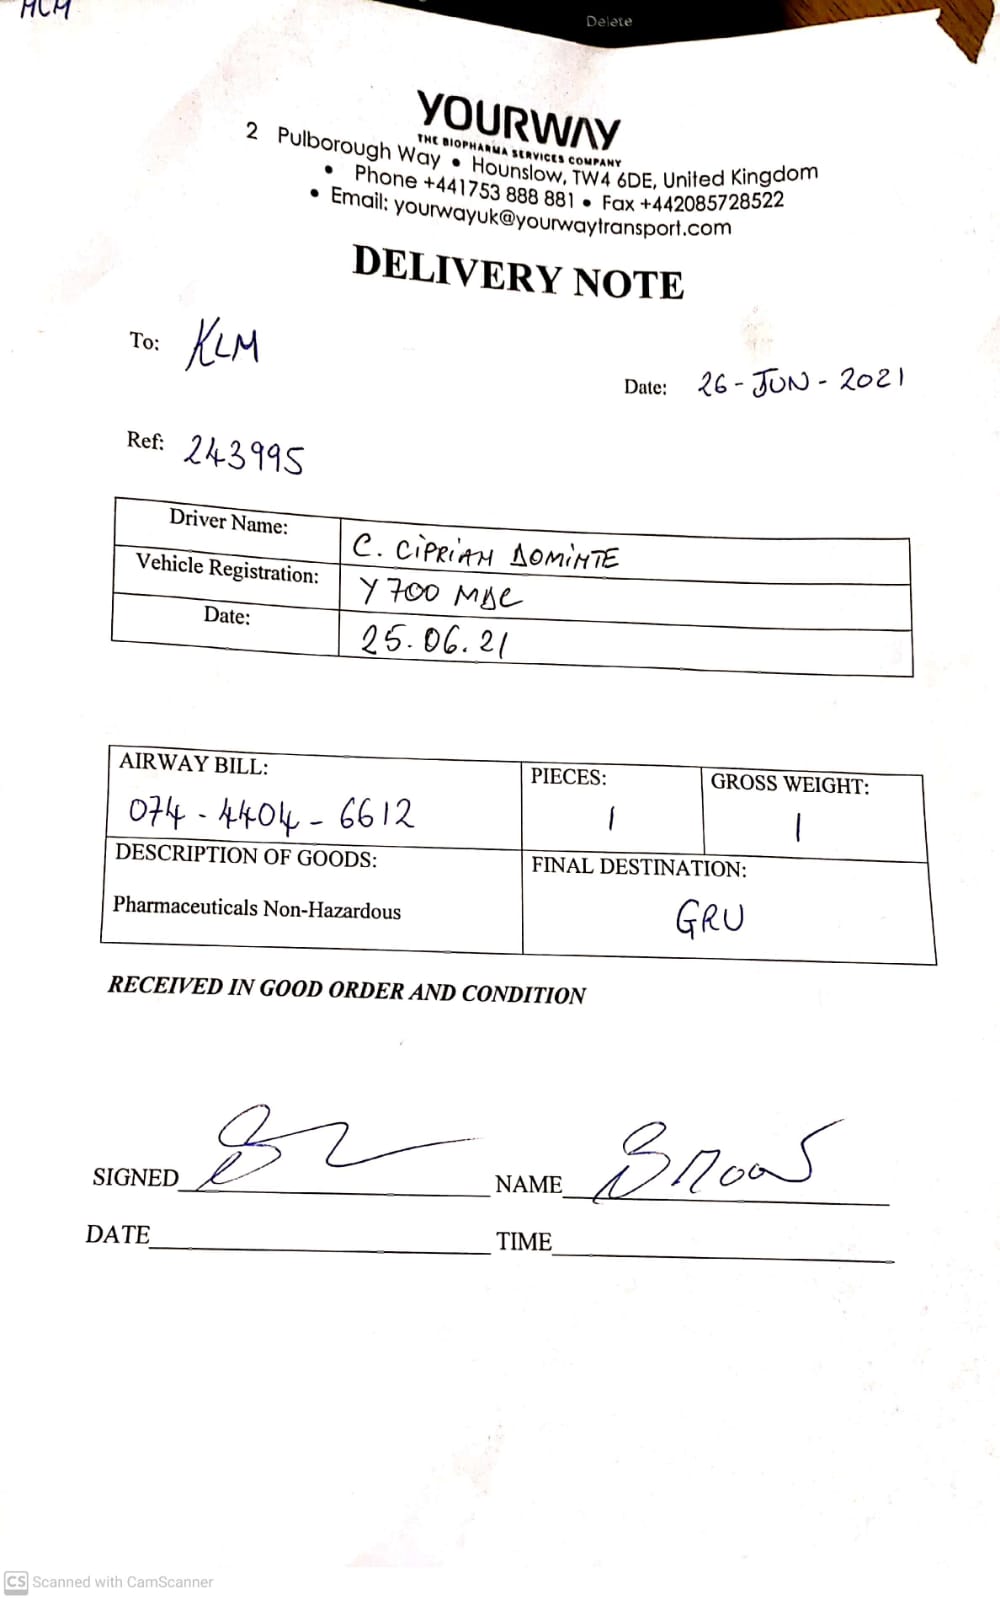 MCM
Delete
YOURWAY
THE BIOPHARMA SERVICES COMPANY
2 Pulborough Way • Hounslow, TW4 6DE, United Kingdom
• Phone +441753 888 881 • Fax +442085728522
• Email: yourwayuk@yourwaytransport.com
DELIVERY NOTE
To: KLM
Date: 26-JUN-2021
Ref: 243995
Driver Name: C. CIPRIAN DOMINTE
Vehicle Registration: Y700 MDC
Date: 25.06.21
AIRWAY BILL: PIECES: GROSS WEIGHT:
074-4404-6612 1 1
DESCRIPTION OF GOODS: FINAL DESTINATION:
Pharmaceuticals Non-Hazardous GRU
RECEIVED IN GOOD ORDER AND CONDITION
SIGNED NAME
DATE TIME
CS Scanned with CamScanner